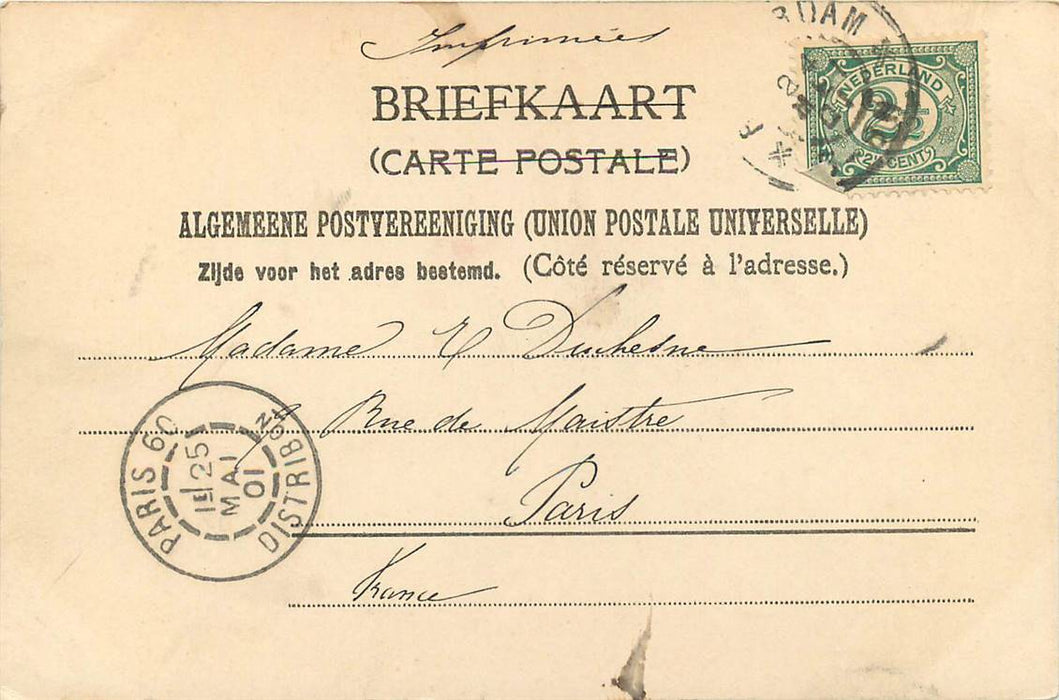 Imprimées
BRIEFKAART
(CARTE POSTALE)
ALGEMEENE POSTVEREENIGING (UNION POSTALE UNIVERSELLE)
Zijde voor het adres bestemd. (Côté réservé à l'adresse.)
NEDERLAND
2½
2½ CENT
RDAM
Madame E Duchesne
Rue de Maistre
Paris
France
PARIS 60
DISTRIBON
1E 25
MAI
01